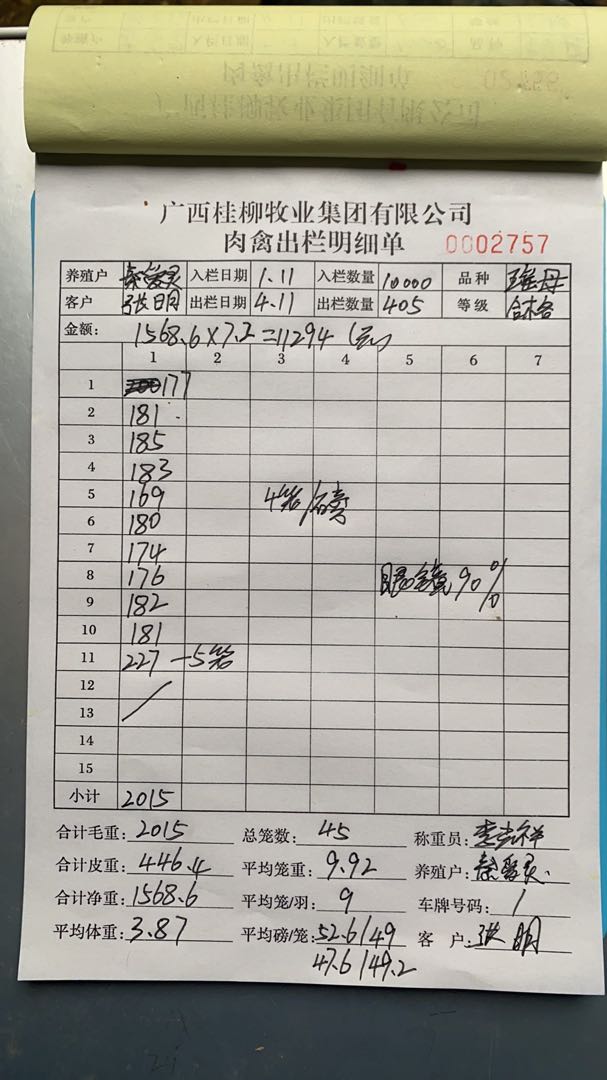 广西桂柳牧业集团有限公司
肉禽出栏明细单 0002757
养殖户 入栏日期 1.11 入栏数量 10000 品种 瑶母
客户 张明 出栏日期 4.11 出栏数量 405 等级 合格
金额: 1568.6×7.2=11294(元)
1 2 3 4 5 6 7
1 177
2 181
3 185
4 183
5 169 4笼/磅
6 180
7 174
8 176 眼镜90%
9 182
10 181
11 227 -5笼
12
13
14
15
小计 2015
合计毛重: 2015 总笼数: 45 称重员:
合计皮重: 446.4 平均笼重: 9.92 养殖户:
合计净重: 1568.6 平均笼/羽: 9 车牌号码: /
平均体重: 3.87 平均磅/笼: 52.6/49 客 户: 张明
47.6/49.2